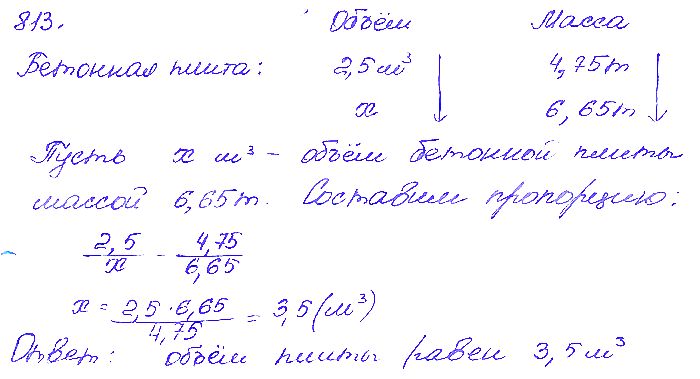 813. Объём Масса
Бетонная плита: 2,5 м³ 4,75 т
x 6,65 т
Пусть x м³ - объём бетонной плиты
массой 6,65 т. Составим пропорцию:
2,5/x - 4,75/6,65
x = 2,5 · 6,65/4,75 = 3,5 (м³)
Ответ: объём плиты равен 3,5 м³